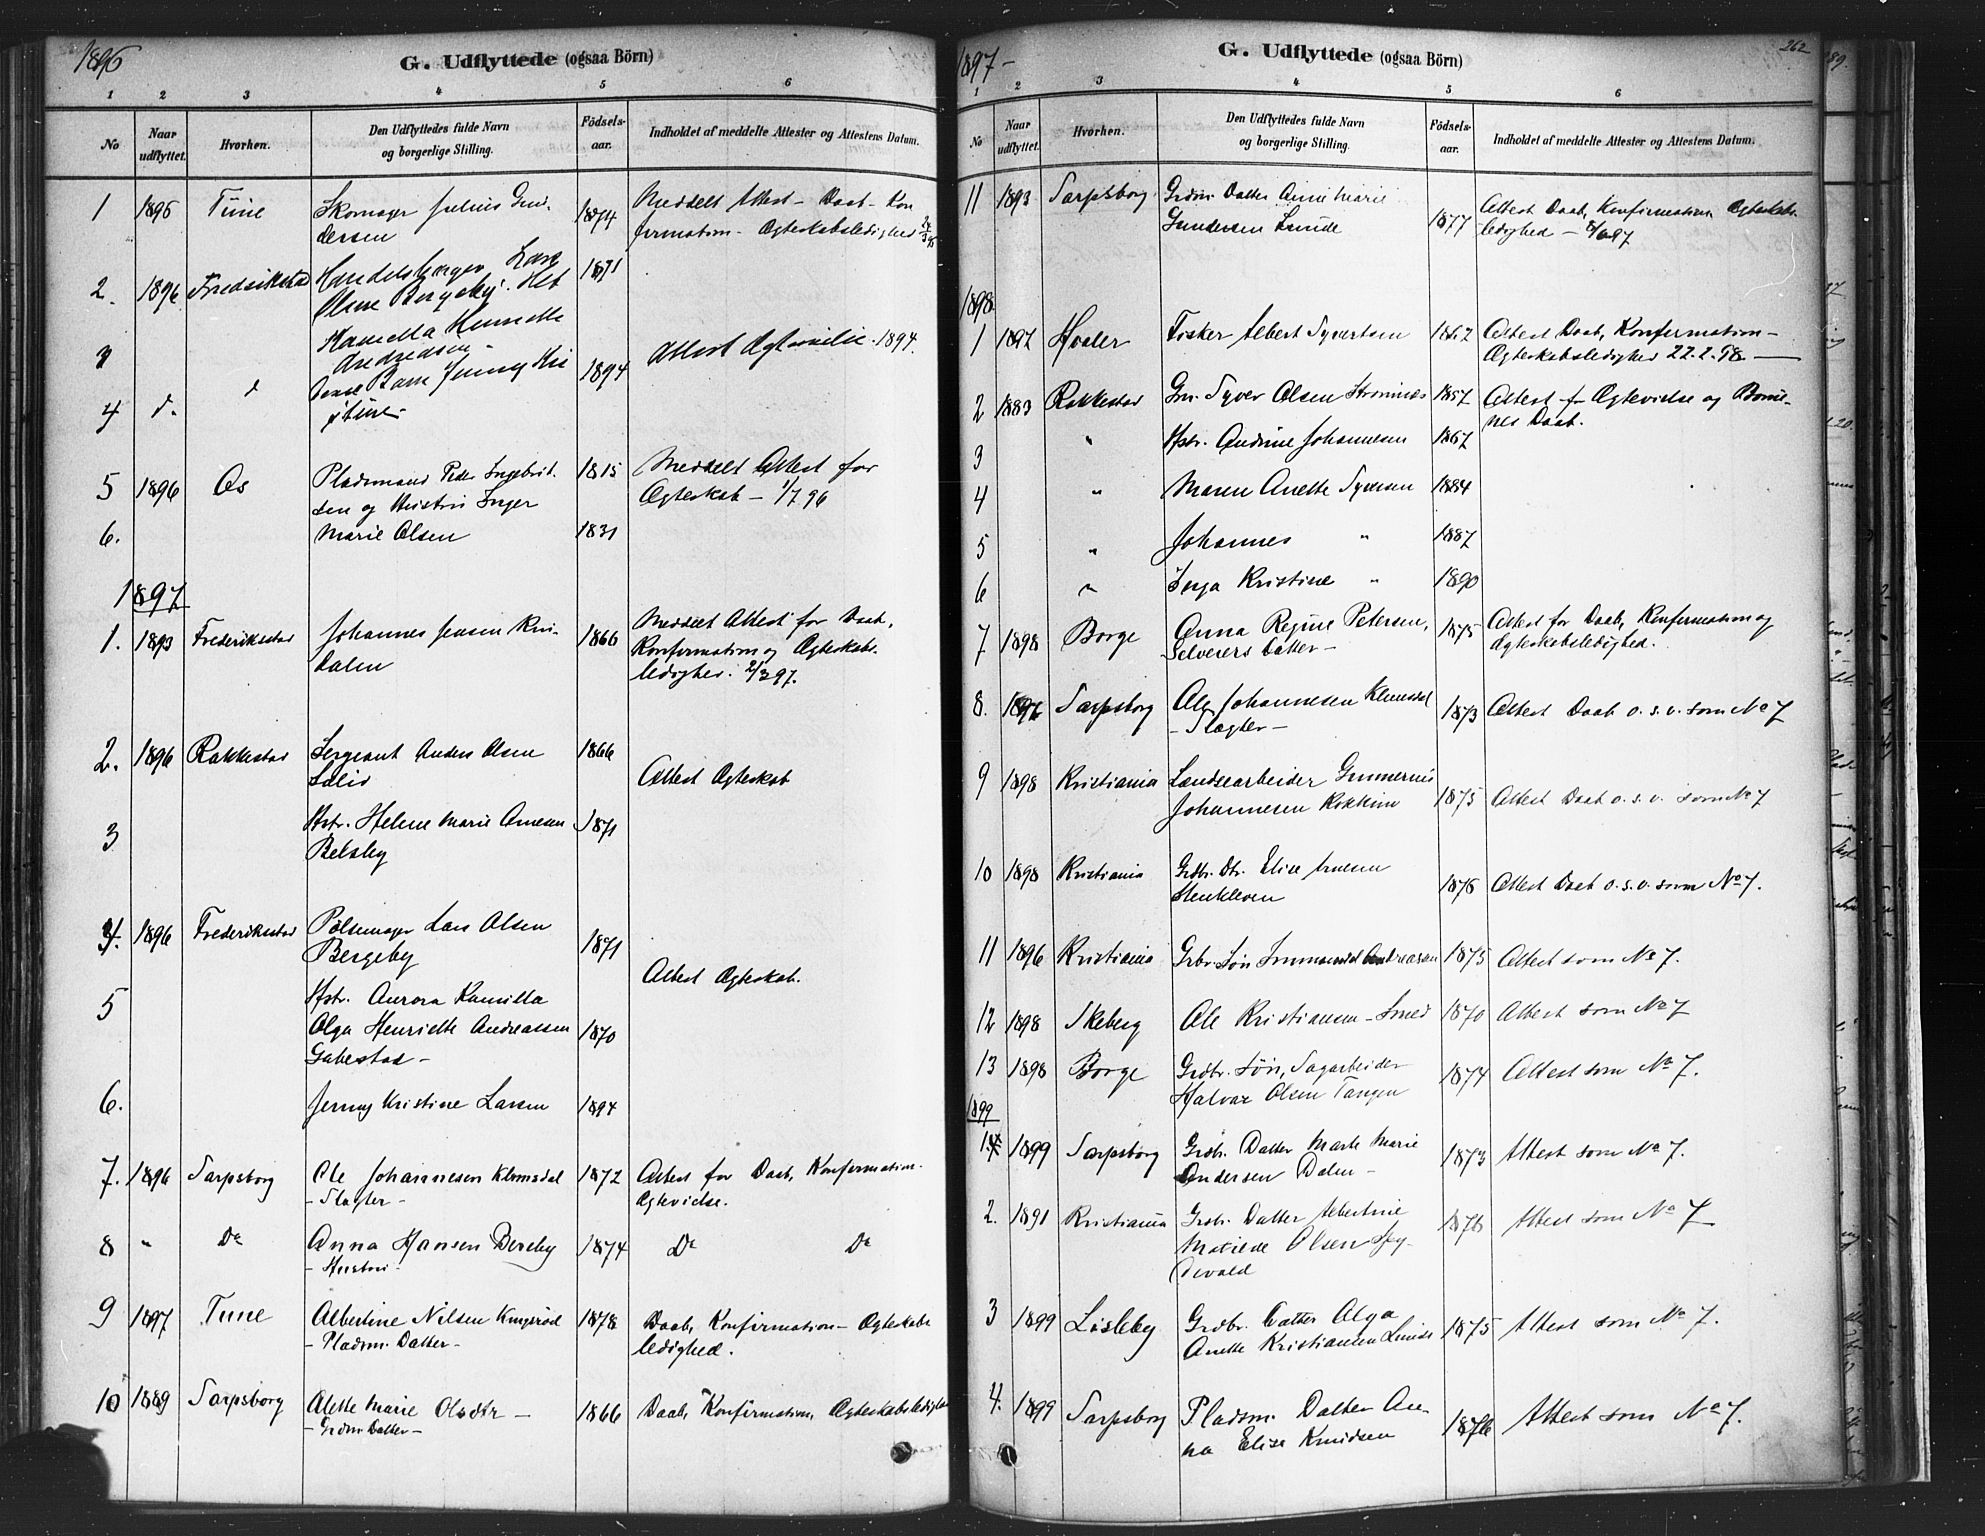 1896
G. Udflyttede (ogsaa Börn)
1 2 3 4 5 6
No
Naar udflyttet.
Hvorhen.
Den Udflyttedes fulde Navn og borgerlige Stilling.
Födsels-aar.
Indholdet af meddelte Attester og Attestens Datum.
1 1895 Tune Skomager Julius Gun- 1874 Meddelt Attest - Daab - Kon
dersen firmation - Ægteskabsledighed
2. 1896 Fredrikstad Handelsborger Lars 1871
Olsen Bergeby.
Andreasen - Attest Ægtevielse 1894.
4 d. Barn Jenny Kri 1894
stine -
5 1896 Os Pladsmand Peder Ingebrit- 1815 Meddelt Attest for
sen og Hustru Inger Ægteskab - 1/7 96
6. Marie Olsen 1831
1897
1. 1893 Frederiksstad Johannes Jensen Kvi- 1866 Meddelt Attest for Daab,
dalen Konfirmation og Ægteskabs-
ledighed. 2/3 97.
2. 1896 Rakkestad Sergeant Anders Olsen 1866
Attest Ægteskab
3 Hstr. Helene Marie Arnesen 1871
Betsby
4. 1896 Frederiksstad Pølsemager Lars Olsen
Bergeby 1871
Attest Ægteskab.
5 Hstr. Aurora Kamilla
Olga Henriette Andreassen 1870
Gabestad -
6. Jenny Kristine Larsen 1894
7. 1896 Sarpsborg Ole Johannesen Klemsdal 1872 Attest for Daab, Konfirmation.
- Slagter - Ægtevielse.
8 " Do Anna Hansen 1874 Do Do
- Hustru -
9 1897 Tune Albertine Nilsen 1878 Daab, Konfirmation - Ægteskabs
- Pladsm. Datter - ledighed.
10 1889 Sarpsborg Alette Marie Olsdtr - 1866 Daab, Konfirmation, Ægteskabsledighed
- Grdm Datter -
1897 -
G. Udflyttede (ogsaa Börn)
262
1 2 3 4 5 6
No
Naar udflyttet.
Hvorhen.
Den Udflyttedes fulde Navn og borgerlige Stilling.
Födsels-aar.
Indholdet af meddelte Attester og Attestens Datum.
11 1893 Sarpsborg Grdm. Datter Anne Marie Attest Daab, Konfirmation Ægteskabs
Gundersen Lunde 1877 ledighed - 97
1898
1 1897 Hvaler Fisker Albert Syvertsen 1867 Attest Daab, Konfirmation -
Ægteskabsledighed 22.2.98. -
2 1883 Rakkestad Gm. Syver Olsen Strømnes 1857 Attest f. Ægtevielse og Børne-
nes Daab.
3 " Hstr. Andrine Johannesen 1867
4 " Maren Anette Syversen 1884
5 " Johannes " 1887
6 " Inga Kristine " 1890
7 1898 Borge Anna Regine Petersen, 1875 Attest for Daab, Konfirmation og
Selveiers Datter - Ægteskabsledighed.
8. 1896 Sarpsborg Ole Johannesen Klemsdal 1873 Attest Daab o.s.v. som No 7
- Slagter -
9 1898 Kristiania Landsearbeider Gunnerius
Johannesen 1875 Attest Daab o.s.v. som No 7
10 1898 Kristiania Grdbr. Dtr. Elise Arnesen
Stenkleven 1878 Attest Daab o.s.v. som No 7.
11 1896 Kristiania Grbr. Søn Immanuel Andreasen 1875 Attest som No 7.
12 1898 Skeberg Ole Kristiansen - Smed 1870 Attest som No 7
13 1898 Borge Grdbr. Søn, Sagarbeider 1874 Attest som No 7.
Halvar Olsen Tangen
1899
1 1899 Sarpsborg Grdb. Datter Marte Marie 1873 Attest som No 7.
Andersen Dalen -
2. 1891 Kristiania Grdb. Datter Albertine 1876 Attest som No 7
Matilde Olsen
3 1899 Lisleby Grdbr. Datter Olga 1875 Attest som No 7.
Anette Kristiansen Lunde
4. 1899 Sarpsborg Pladsm. Datter An- 1876 Attest som No 7.
na Elise Knudsen